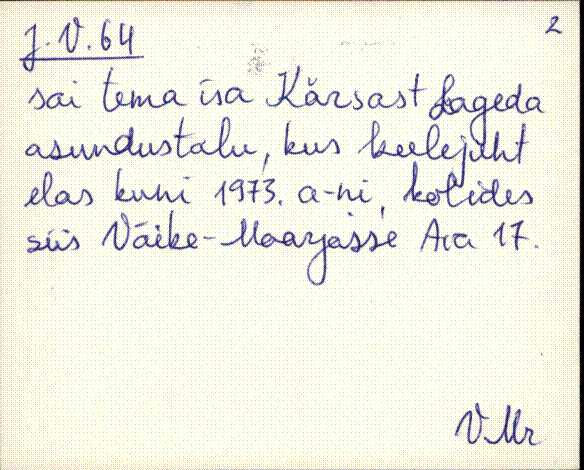 J. V. 64
2
sai tema isa Kärsast Lageda
asundustalu, kus keelejuht
elas kuni 1973. a-ni, kolides
siis Väike-Maarjasse Aia 17.
V Mr